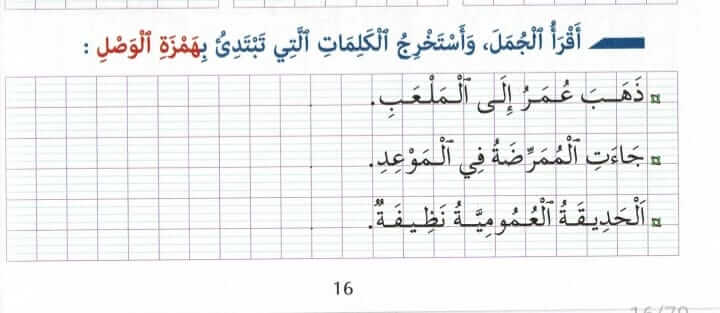 أَقْرَأُ ٱلْجُمَلَ، وَأَسْتَخْرِجُ ٱلْكَلِمَاتِ ٱلَّتِي تَبْتَدِئُ بِهَمْزَةِ ٱلْوَصْلِ :
ذَهَـبَ عُمَـرُ إِلَـى ٱلْـمَلْـعَـبِ.
جَاءَتِ ٱلْمُمَرِّضَةُ فِي ٱلْـمَوْعِدِ.
اَلْحَدِيـقَـةُ ٱلْعُمُومِيَّـةُ نَظِـيفَـةٌ.
16